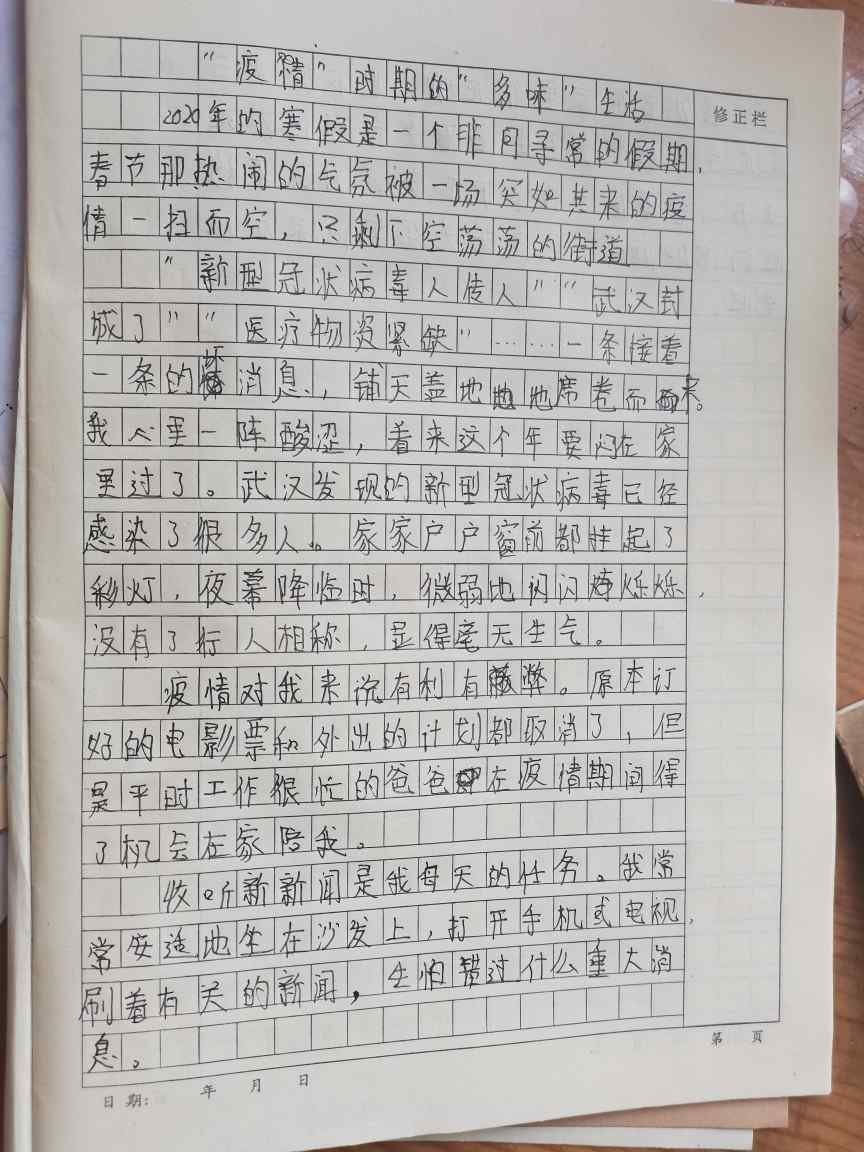 “疫情”时期的“多味”生活
修正栏
2020年的寒假是一个非同寻常的假期，
春节那热闹的气氛被一场突如其来的疫
情一扫而空，只剩下空荡荡的街道
“新型冠状病毒人传人”“武汉封
城了”“医疗物资紧缺”……一条接着
一条的坏消息，铺天盖地地席卷而来。
我心里一阵酸涩，看来这个年要闷在家
里过了。武汉发现的新型冠状病毒已经
感染了很多人。家家户户窗前都挂起了
彩灯，夜幕降临时，微弱地闪闪烁烁，
没有了行人相称，显得毫无生气。
疫情对我来说有利有弊。原本订
好的电影票和外出的计划都取消了，但
是平时工作很忙的爸爸在疫情期间得
了机会在家陪我。
收听新新闻是我每天的任务。我常
常安适地坐在沙发上，打开手机或电视，
刷着有关的新闻，生怕错过什么重大消
息。
第 页
日期： 年 月 日